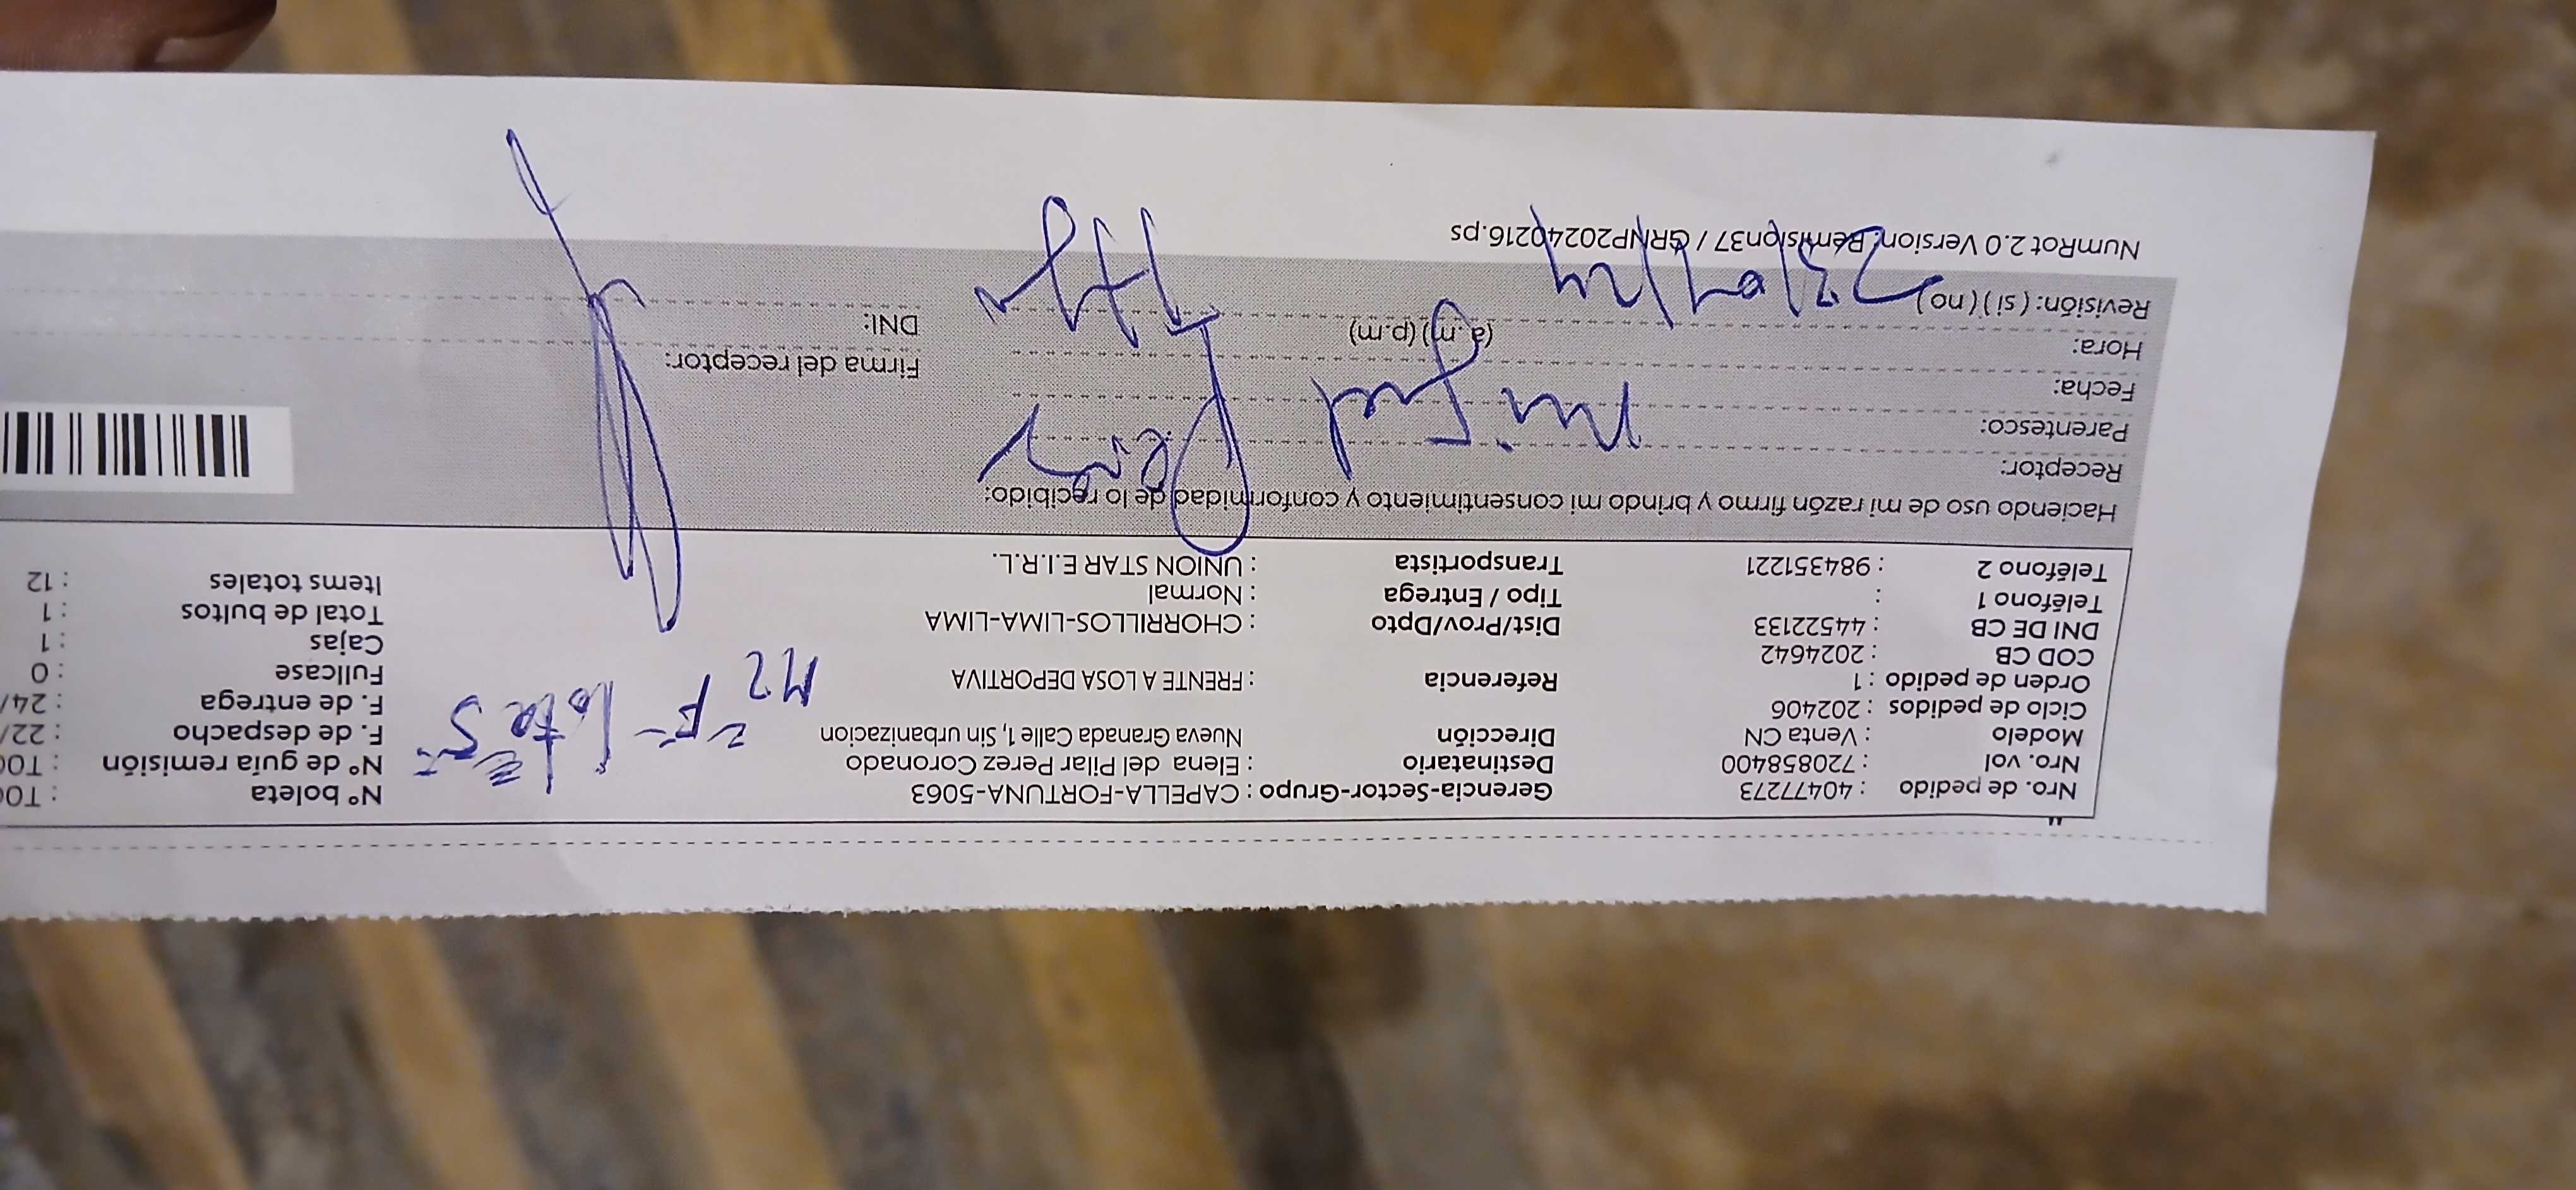 Nro. de pedido : 40477273 Gerencia-Sector-Grupo : CAPELLA-FORTUNA-5063 Nº boleta : T00
Nro. vol : 720858400 Destinatario : Elena del Pilar Perez Coronado Nº de guía remisión : T00
Modelo : Venta CN Dirección Nueva Granada Calle 1, Sin urbanizacion F. de despacho : 22/
Ciclo de pedidos : 202406 F. de entrega : 24/
Orden de pedido : 1 Referencia : FRENTE A LOSA DEPORTIVA Fullcase : 0
COD CB : 2024642 Cajas : 1
DNI DE CB : 44522133 Dist/Prov/Dpto : CHORRILLOS-LIMA-LIMA Total de bultos : 1
Teléfono 1 : Tipo / Entrega : Normal Items totales : 12
Teléfono 2 : 984351221 Transportista : UNION STAR E.I.R.L.
MZ F lote 5
Haciendo uso de mi razón firmo y brindo mi consentimiento y conformidad de lo recibido:
Receptor:
Parentesco:
Fecha:
Hora: (a.m) (p.m) Firma del receptor:
Revisión: (si) (no) DNI:
NumRot 2.0 Version: Remision37 / GRNP20240216.ps